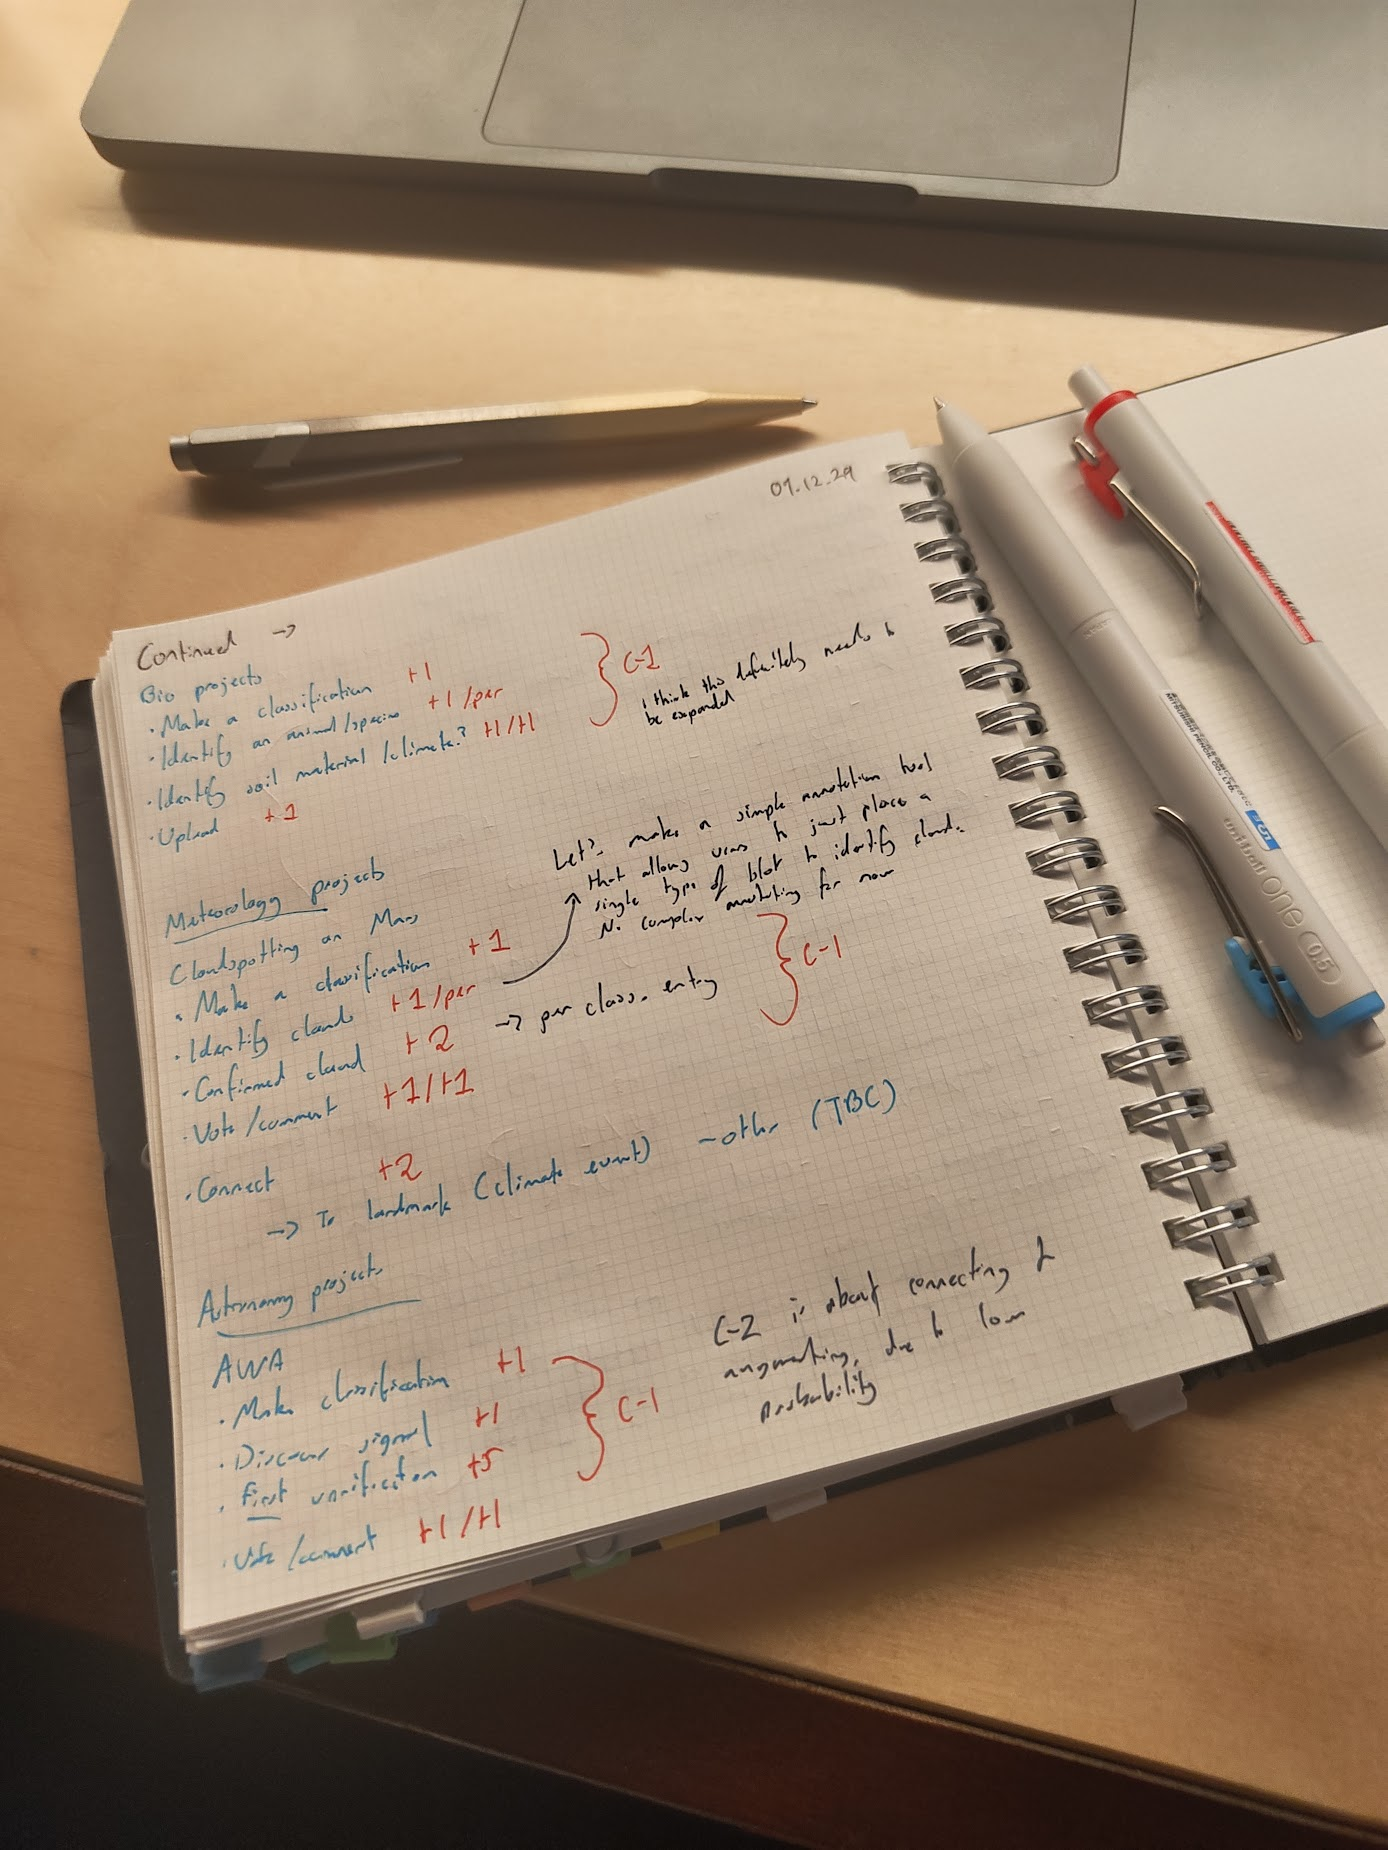 07.12.24
Continued →
Bio projects
· Make a classification +1
· Identify an animal/species +1/per
· Identify soil material/climate? +1/+1
· Upload +1
} C-1
I think this definitely needs to
be expanded
Meteorology projects
Cloudspotting on Mars
· Make a classification +1
· Identify clouds +1/per
· Confirmed cloud +2 → per class. entry
· Vote/comment +1/+1
} C-1
Let's make a simple annotation tool
that allows users to just place a
single type of blot to identify clouds.
No complex annotating for now
· Connect +2
→ To landmark (climate event) ~other (TBC)
Astronomy projects
AWA
· Make classification +1
· Discover signal +1
· First verification +5
· Vote/comment +1/+1
} C-1
C-2 is about connecting &
augmenting, due to low
probability
uniball one 0.5
MITSUBISHI PENCIL CO., LTD.